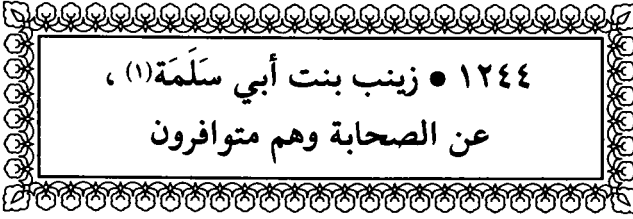 ١٢٤٤ • زينب بنت أبي سَلَمَة(١) ،
عن الصحابة وهم متوافرون